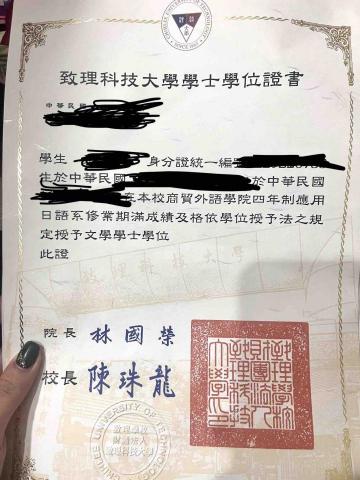 致理科技大學學士學位證書
中華民國
學生 身分證統一編
生於中華民國 於中華民國
在本校商貿外語學院四年制應用
日語系修業期滿成績及格依學位授予法之規
定授予文學學士學位
此證
致理科技大學
院長 林國榮
校長 陳珠龍
CHIHLEE UNIVERSITY OF TECHNOLOGY
致理學校
財團法人
致理科技大學